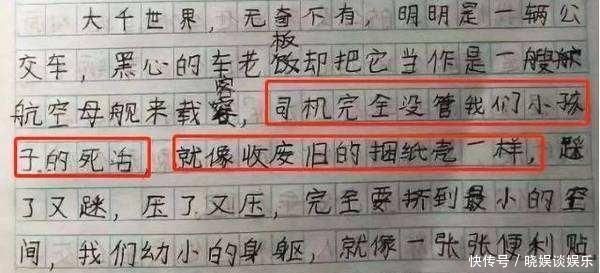 大千世界，无奇不有，明明是一辆公
交车，黑心的车老板却把它当作是一艘
航空母舰来载客，司机完全没管我们小孩
子的死活，就像收废旧的捆纸壳一样，踩
了又踩，压了又压，完全要挤到最小的空
间，我们幼小的身躯，就像一张张便利贴
快传号 / 晓娱谈娱乐